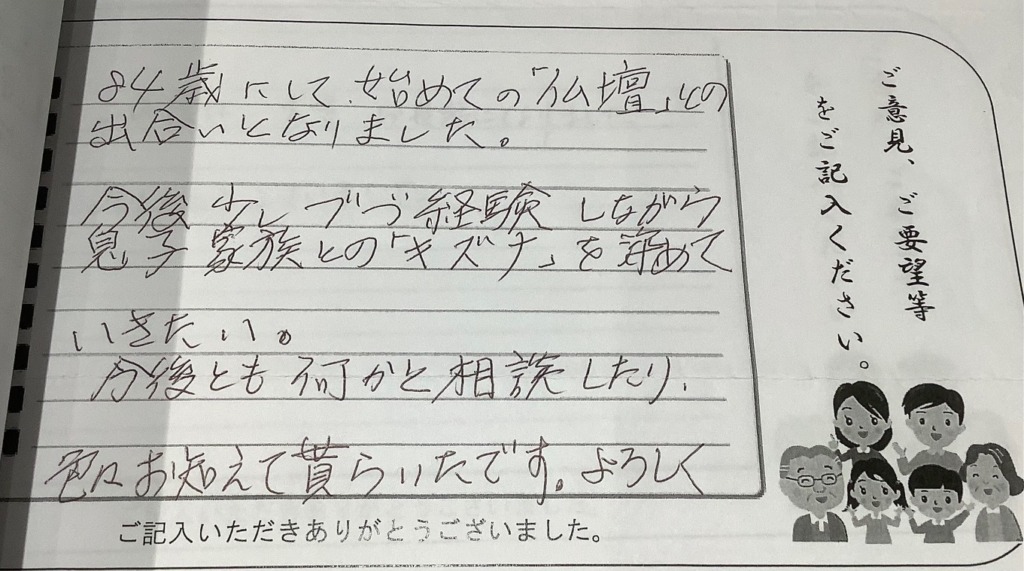 ご意見、ご要望等
をご記入ください。
84歳にして、始めての「仏壇」との
出合いとなりました。
今後 少しづづ経験しながら
息子 家族との「キズナ」を 深めて
いきたい。
今後とも 何かと相談したり、
色々お知えて貰らいたです。よろしく
ご記入いただきありがとうございました。